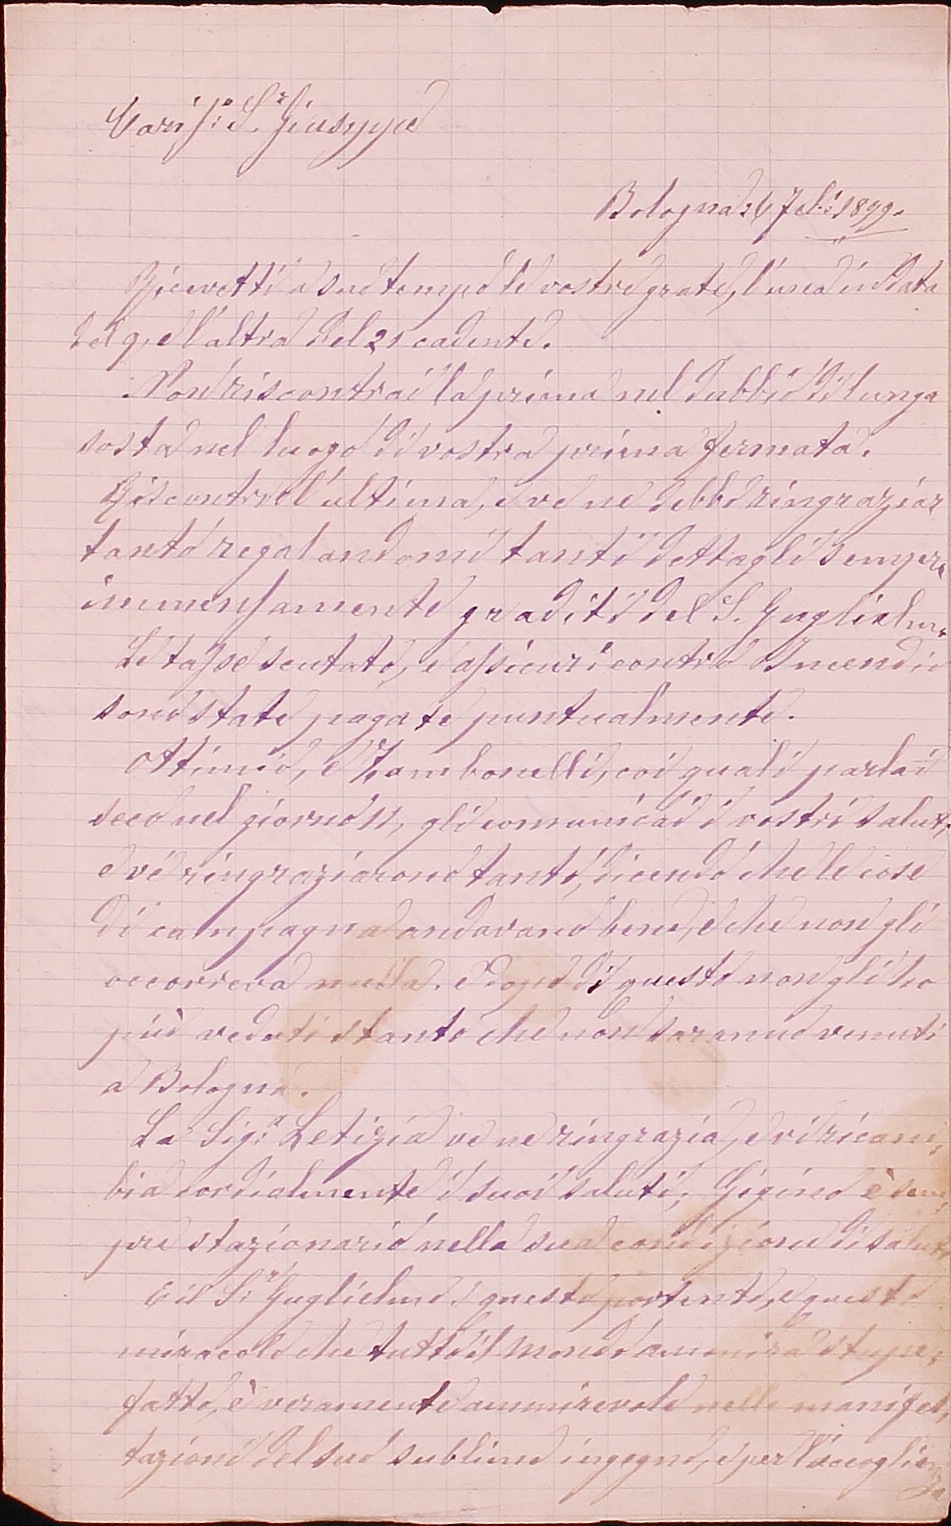 Caris.º S.r Giuseppe
Bologna 26 7bre 1899.
Ricevetti a suo tempo le vostre grate, l'una in data
del 9, e l'altra del 21 cadente.
Non riscontrai la prima nel dubbio di lunga
sosta nel luogo di vostra prima fermata.
Riscontro l'ultima, e ve ne debbo ringraziar
tanto regalandomi tanti dettagli sempre
immensamente graditi del S. Guglielmo
Le tasse scutato, e assicuri contro Incendio
sono state pagate puntualmente.
Ottimio, e Zambonelli, coi quali parlai
seco nel giorno 11, gli comunicai i vostri saluti,
e vi ringraziarono tanto, dicendo che le cose
di campagna andavano bene, e che non gli
occorreva nulla. E dopo di questo non gli ho
più veduti stante che non saranno venuti
a Bologna.
La Sig.a Letizia ve ne ringrazia, e vi ricam,
bia cordialmente i suoi saluti, Gigino è sem,
pre stazionario nella sua condizione di salute,
E il S.r Guglielmo: questo portento, e questo
miracolo che tutto il mondo ammira stupe,
fatto, è veramente ammirevole nelle manifes,
tazioni del suo sublime ingegno, e per l'accoglien
za